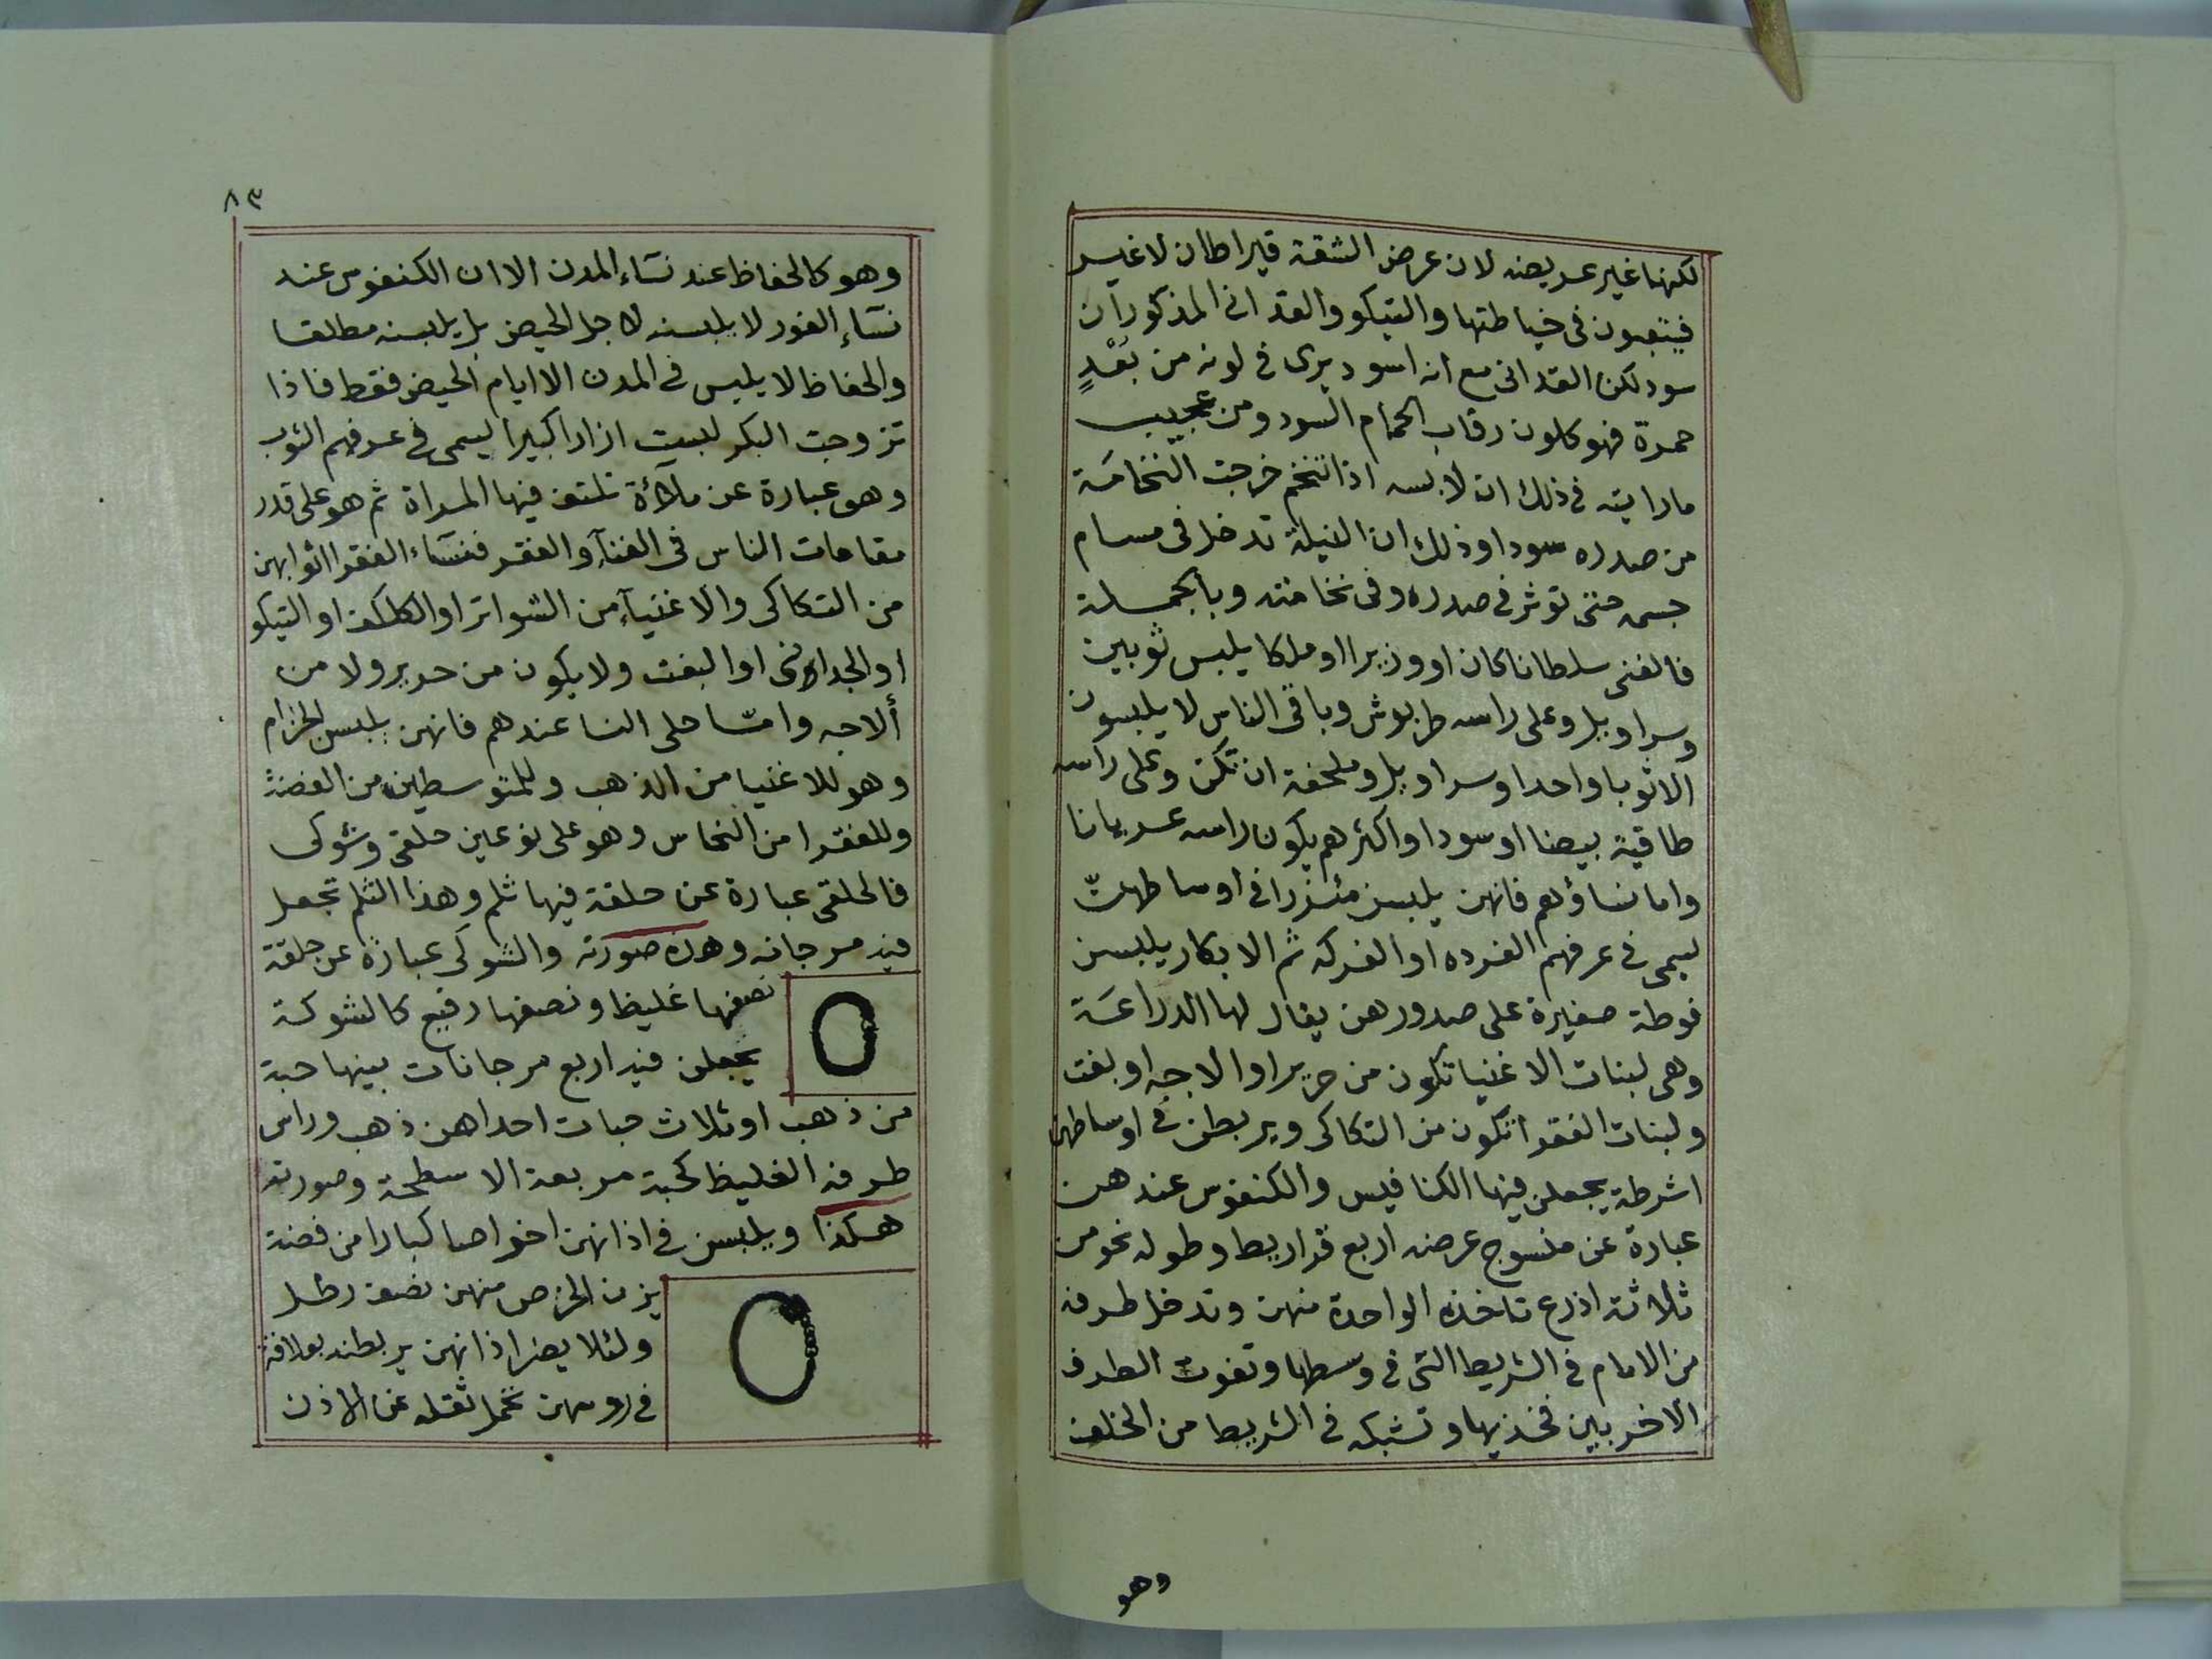 لكنها غير عريضه لان عرض الشقة قيراطان لا غير
فيتعبون فى خياطتها والتيكو والقدانى المذكوران
سود لكن القدانى مع انه اسود يرى فى لونه من بَعْدٍ
حمرة فهو كلون رقاب الحمام السود ومن عجيب
ما رايته فى ذلك ان لابسه اذا تنخم خرجت النخامَة
من صدره سودا وذلك ان النيلة تدخل فى مسام
جسمه حتى توثر فى صدره وفى نخامته وبالجملة
فالغنى سلطانا كان او وزيرا او ملكا يلبس ثوبين
وسراويل وعلى راسه طربوش وباقى الناس لا يلبسون
الا ثوبا واحدا وسراويل وملحفة ان تكن وعلى راسه
طاقية بيضا او سودا واكثرهم يكون راسه عريانا
واما نساؤهم فانهن يلبسن مئزرا فى اوساطهنّ
يسمى فى عرفهم الفرده او الفركه ثم الابكار يلبسن
فوطة صغيرة على صدورهن يقال لها الدراعَة
وهى لبنات الاغنيا تكون من حرير او الاجه او بفت
ولبنات الفقرا تكون من التكاكى ويربطن فى اوساطهن
اشرطة يجعلن فيها الكنافيس والكنفوس عندهن
عبارة عن منسوج عرضه اربع قراريط وطوله نحو من
ثلاثة اذرع تاخذه الواحدة منهن وتدخل طرفه
من الامام فى الشريط التى فى وسطها وتفوت الطرف
الاخر بين فخذيها وتشبكه فى الشريط من الخلف
وهو
٨٣
وهو كالحفاظ عند نسَاء المدن الا ان الكنفوس عند
نسَاء الفور لا يلبسنه لاجل الحيض بل يلبسنه مطلقا
والحفاظ لا يلبس فى المدن الا ايام الحيض فقط فاذا
تزوجت البكر لبست ازارا كبيرا يسمى فى عرفهم الثوب
وهو عبارة عن ملآئة تلتف فيها المراة ثم هو على قدر
مقامات الناس فى الغنآء والفقر فنسَاء الفقرا اثوابهن
من التكاكى والاغنيآء من الشواتر او الكلكف او التيكو
او الجدانى او البفت ولا يكون من حرير ولا من
ألاجه وامّا حلى النسا عندهم فانهن يلبسن الخزام
وهو للاغنيا من الذهب وللمتوسطين من الفضة
وللفقرا من النحاس وهو على نوعين حلقى وشوكى
فالحلقى عبارة عن حلقة فيها ثلم وهذا الثلم تجعل
فيه مرجانه وهذه صورته والشوكى عبارة عن حلقة
نصفها غليظ ونصفها رفيع كالشوكة
يجعلن فيه اربع مرجانات بينها حبة
من ذهب او ثلاث حبات احداهن ذهب وراس
طرفه الغليظ كحبة مربعة الاسطحة وصورته
هكذا ويلبسن فى اذانهن اخراصا كبارا من فضة
يزن الخرص منهن نصف رطل
ولئلا يضر اذانهن يربطنه بعلاقة
فى روسهن تحمل ثقله عن الاذن